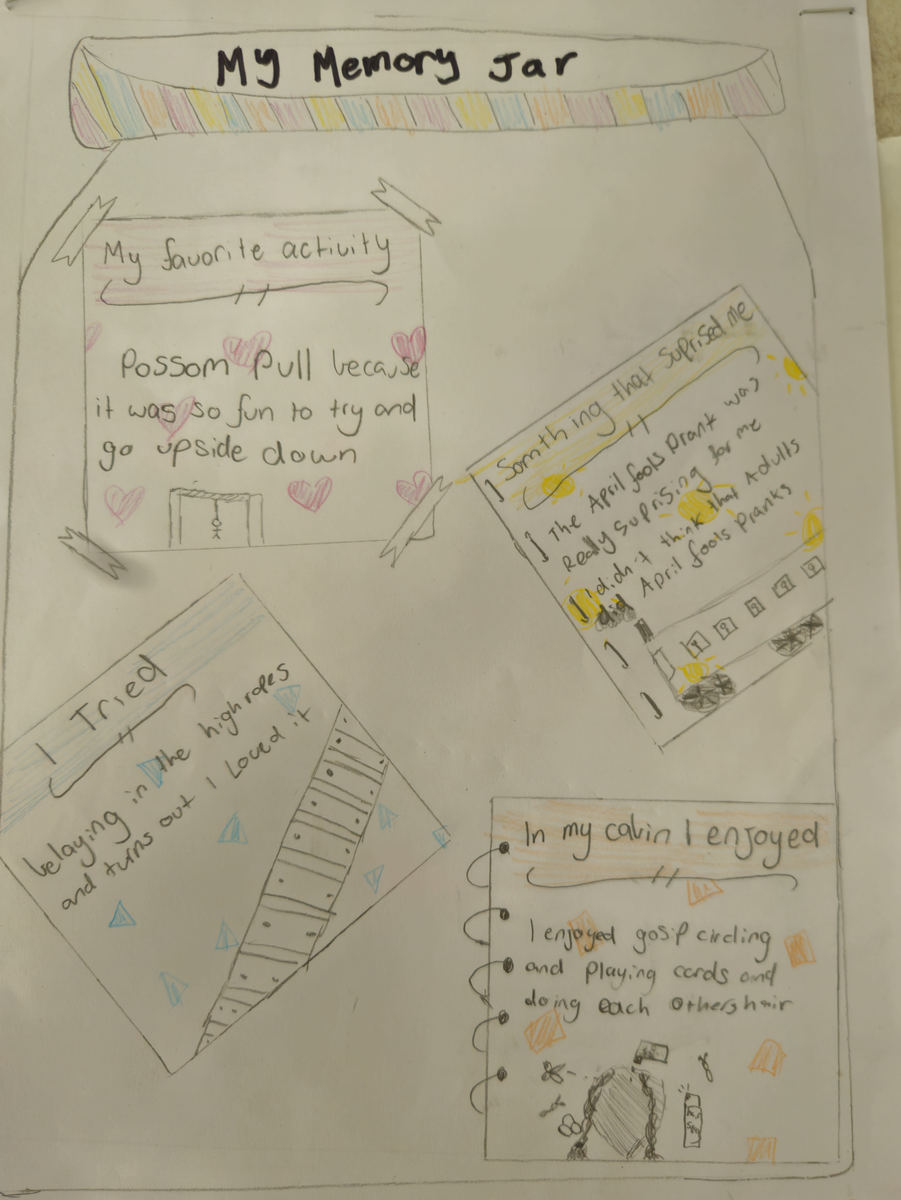 My Memory Jar
My favorite activity
Possom Pull because
it was so fun to try and
go upside down
Somthing that suprised me
The April fools prank was
really suprising for me
I didn't think that Adults
did April fools pranks
I Tried
belaying in the high ropes
and turns out I Loved it
In my cabin I enjoyed
I enjoyed gosip circling
and playing cards and
doing each others hair